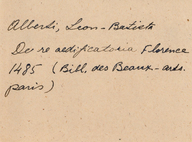 Alberti, Leon-Batista
De re aedificatoria Florence
1485 (Bibl. des Beaux-arts.
paris)